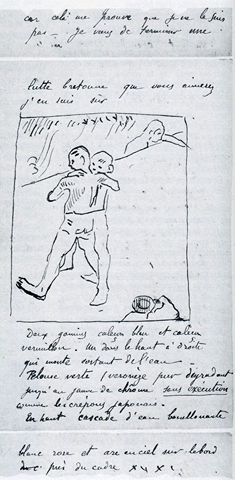 car cela me prouve que je ne le suis
pas — Je viens de terminer une
lutte bretonne que vous aimerez
j'en suis sûr
Deux gamins caleçon bleu et caleçon
vermillon. Un dans le haut à droite
qui monte sortant de l'eau —
Pelouse verte Véronèse pur dégradant
jusqu'au jaune de chrome sans exécution
comme les crépons japonais.
En haut cascade d'eau bouillonnante
blanc rose et arc en ciel sur le bord
près du cadre